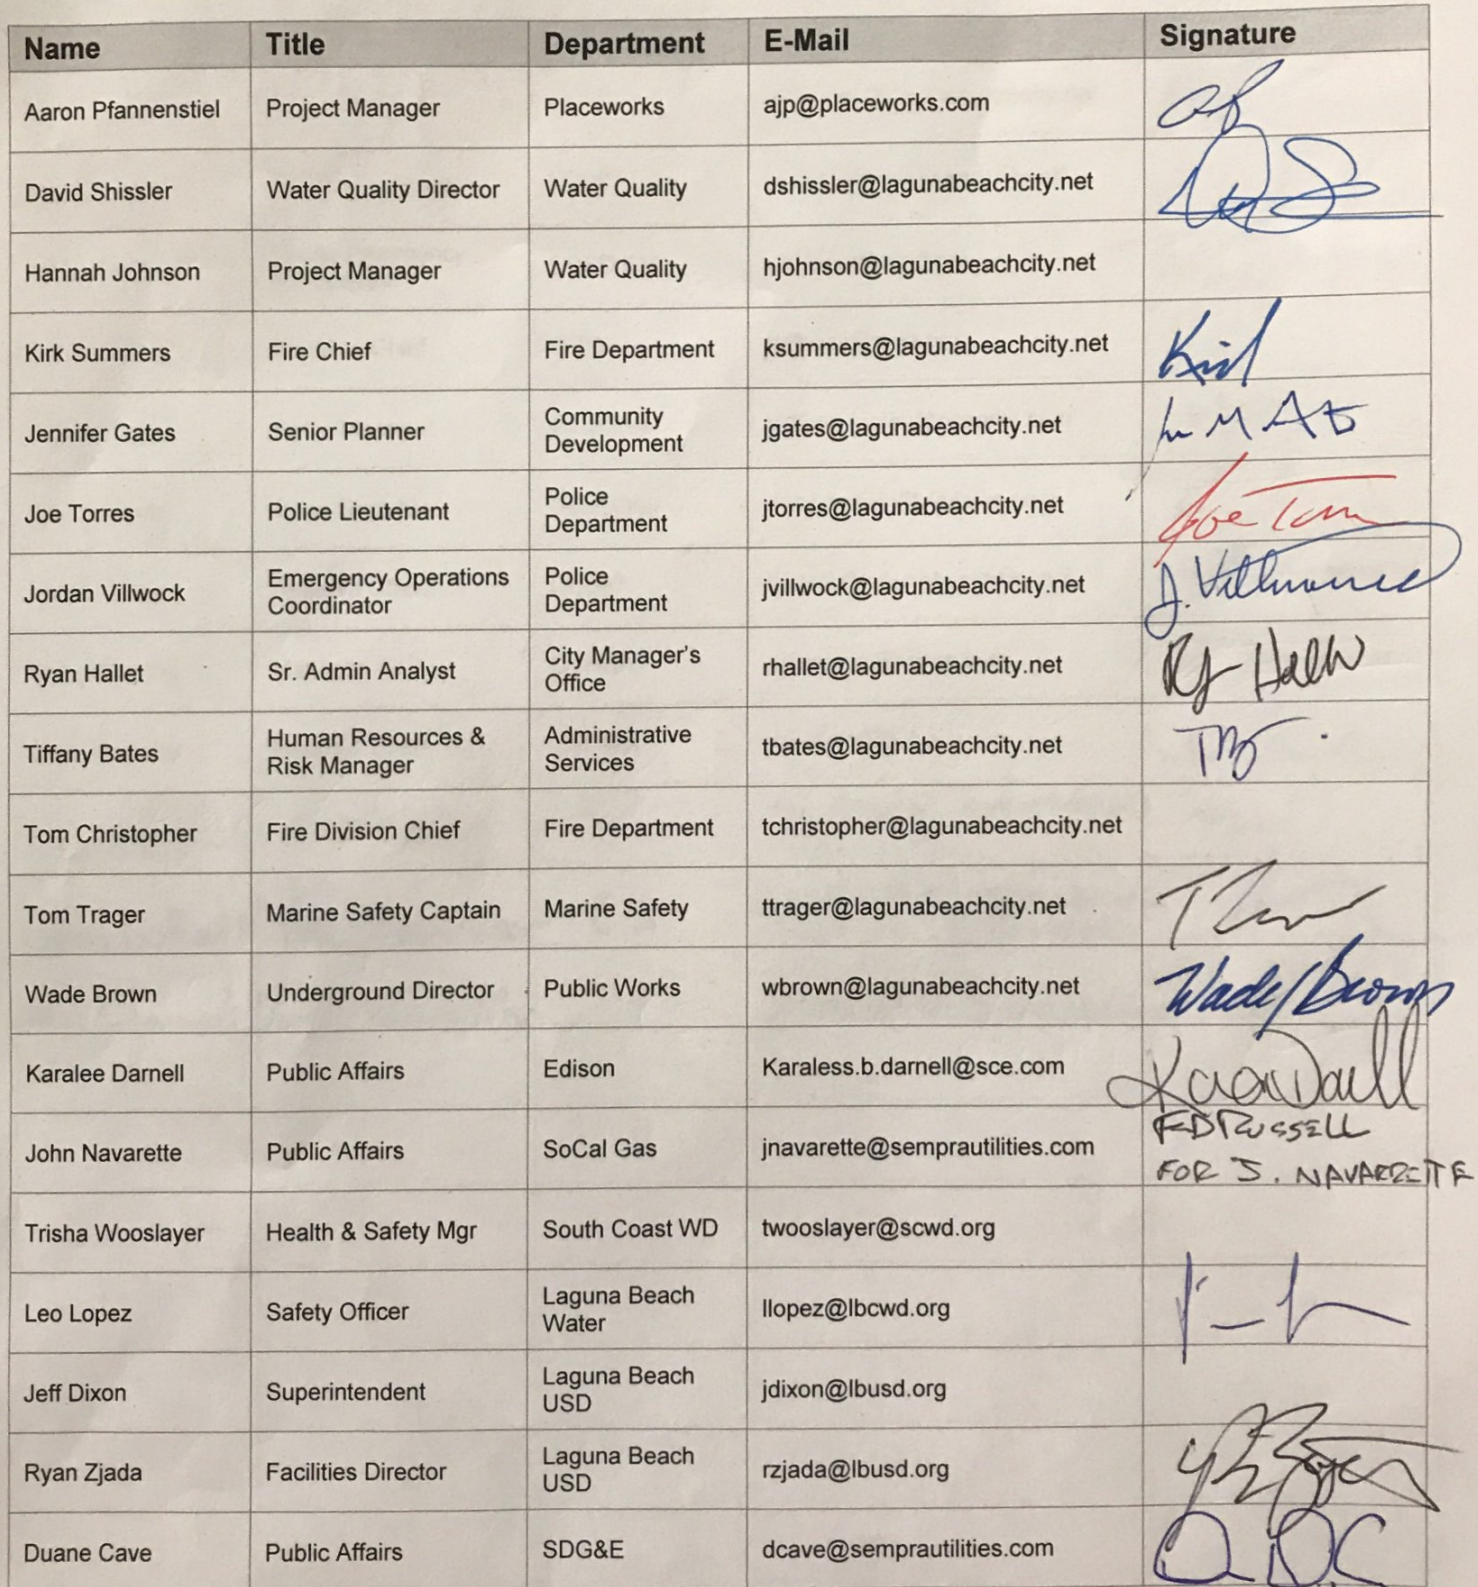 Name Title Department E-Mail Signature
Aaron Pfannenstiel Project Manager Placeworks ajp@placeworks.com
David Shissler Water Quality Director Water Quality dshissler@lagunabeachcity.net
Hannah Johnson Project Manager Water Quality hjohnson@lagunabeachcity.net
Kirk Summers Fire Chief Fire Department ksummers@lagunabeachcity.net
Jennifer Gates Senior Planner Community Development jgates@lagunabeachcity.net
Joe Torres Police Lieutenant Police Department jtorres@lagunabeachcity.net Joe
Jordan Villwock Emergency Operations Coordinator Police Department jvillwock@lagunabeachcity.net
Ryan Hallet Sr. Admin Analyst City Manager's Office rhallet@lagunabeachcity.net
Tiffany Bates Human Resources & Risk Manager Administrative Services tbates@lagunabeachcity.net
Tom Christopher Fire Division Chief Fire Department tchristopher@lagunabeachcity.net
Tom Trager Marine Safety Captain Marine Safety ttrager@lagunabeachcity.net
Wade Brown Underground Director Public Works wbrown@lagunabeachcity.net Wade Brown
Karalee Darnell Public Affairs Edison Karaless.b.darnell@sce.com
John Navarette Public Affairs SoCal Gas jnavarette@semprautilities.com RUSSELL
FOR J. NAVARRETTE
Trisha Wooslayer Health & Safety Mgr South Coast WD twooslayer@scwd.org
Leo Lopez Safety Officer Laguna Beach Water llopez@lbcwd.org
Jeff Dixon Superintendent Laguna Beach USD jdixon@lbusd.org
Ryan Zjada Facilities Director Laguna Beach USD rzjada@lbusd.org
Duane Cave Public Affairs SDG&E dcave@semprautilities.com